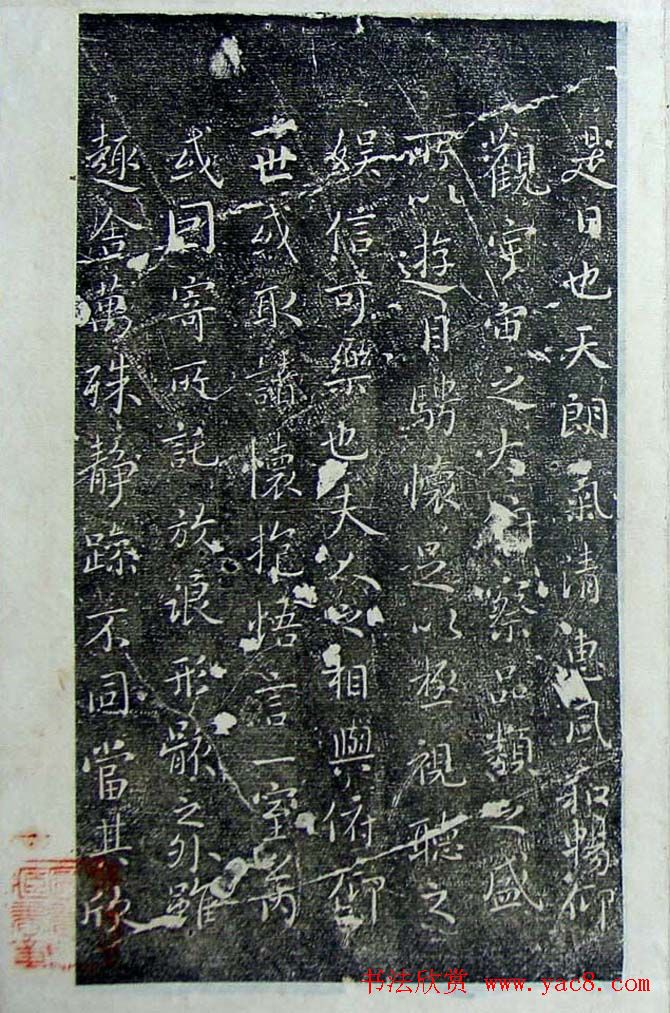 是日也天朗氣清惠風和暢仰
觀宇宙之大俯察品類之盛
所以遊目騁懷足以極視聽之
娛信可樂也夫人之相與俯仰
一世或取諸懷抱悟言一室之內
或因寄所託放浪形骸之外雖
趣舍萬殊靜躁不同當其欣
书法欣赏 www.yac8.com